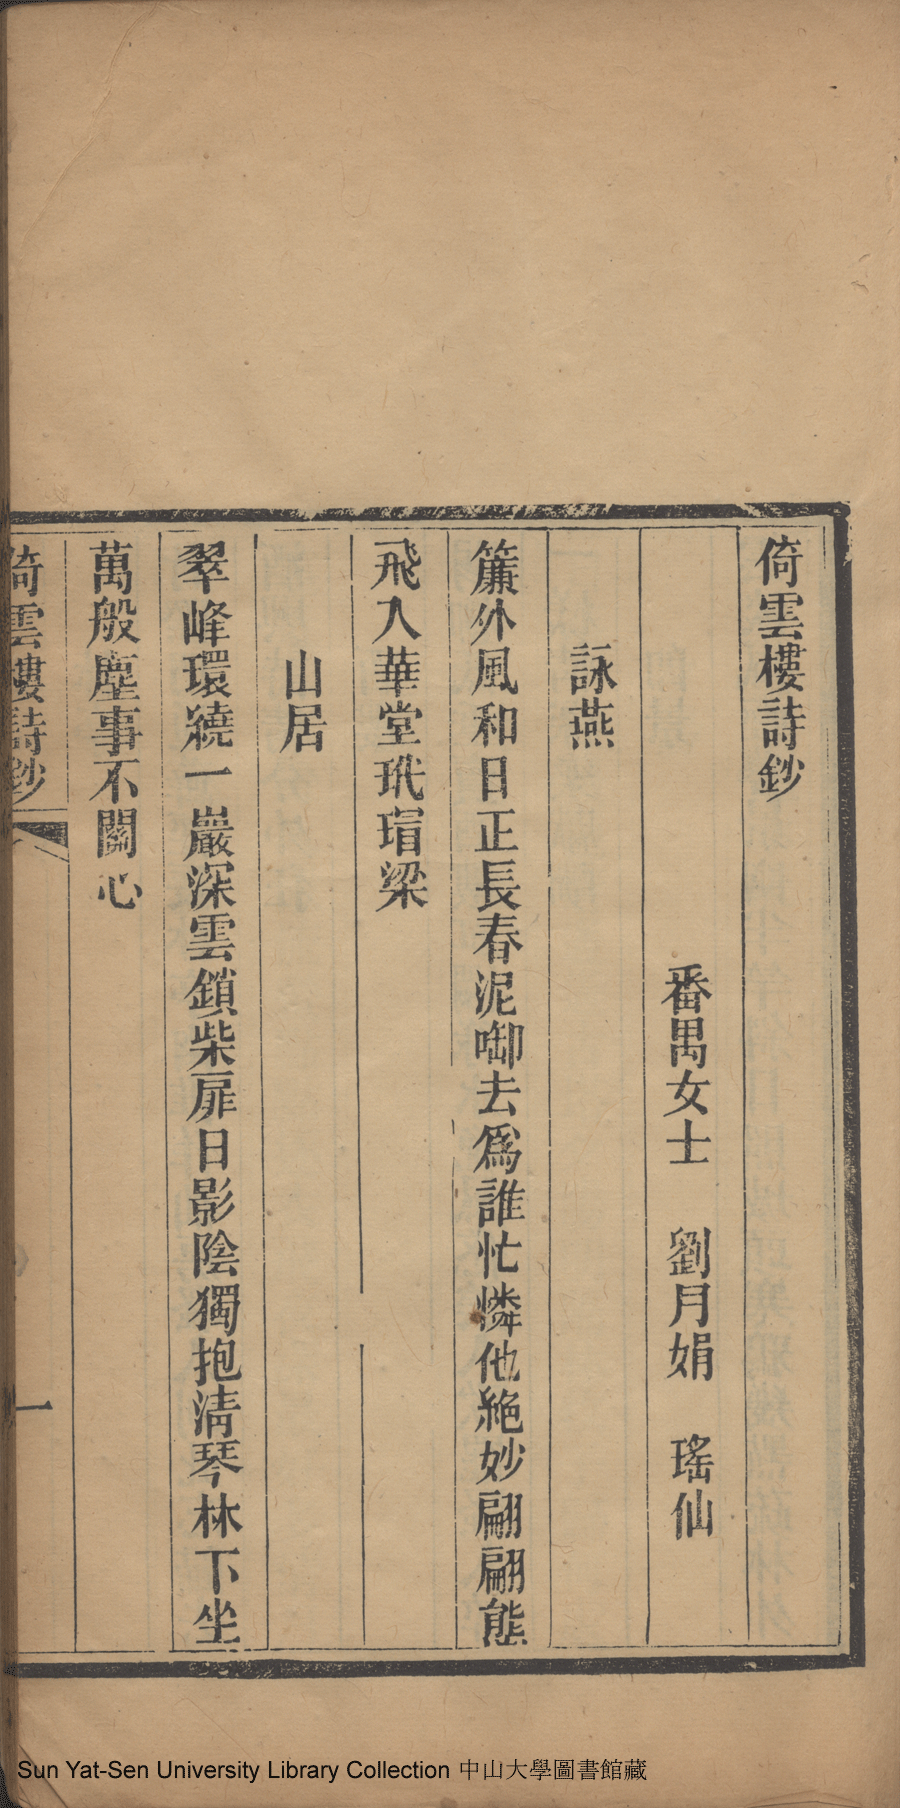 倚雲樓詩鈔
番禺女士　劉月娟　瑤仙
詠燕
簾外風和日正長春泥啣去為誰忙憐他絶妙翩翩態
飛入華堂玳瑁梁
山居
翠峰環繞一巖深雲鎖柴扉日影陰獨抱清琴林下坐
萬般塵事不關心
倚雲樓詩鈔
一
Sun Yat-Sen University Library Collection 中山大學圖書館藏